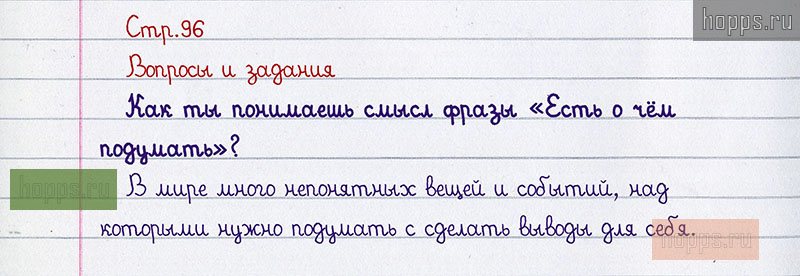 Стр.96
hopps.ru
Вопросы и задания
Как ты понимаешь смысл фразы «Есть о чём
подумать»?
hopps.ru
В мире много непонятных вещей и событий, над
которыми нужно подумать с сделать выводы для себя.
hopps.ru